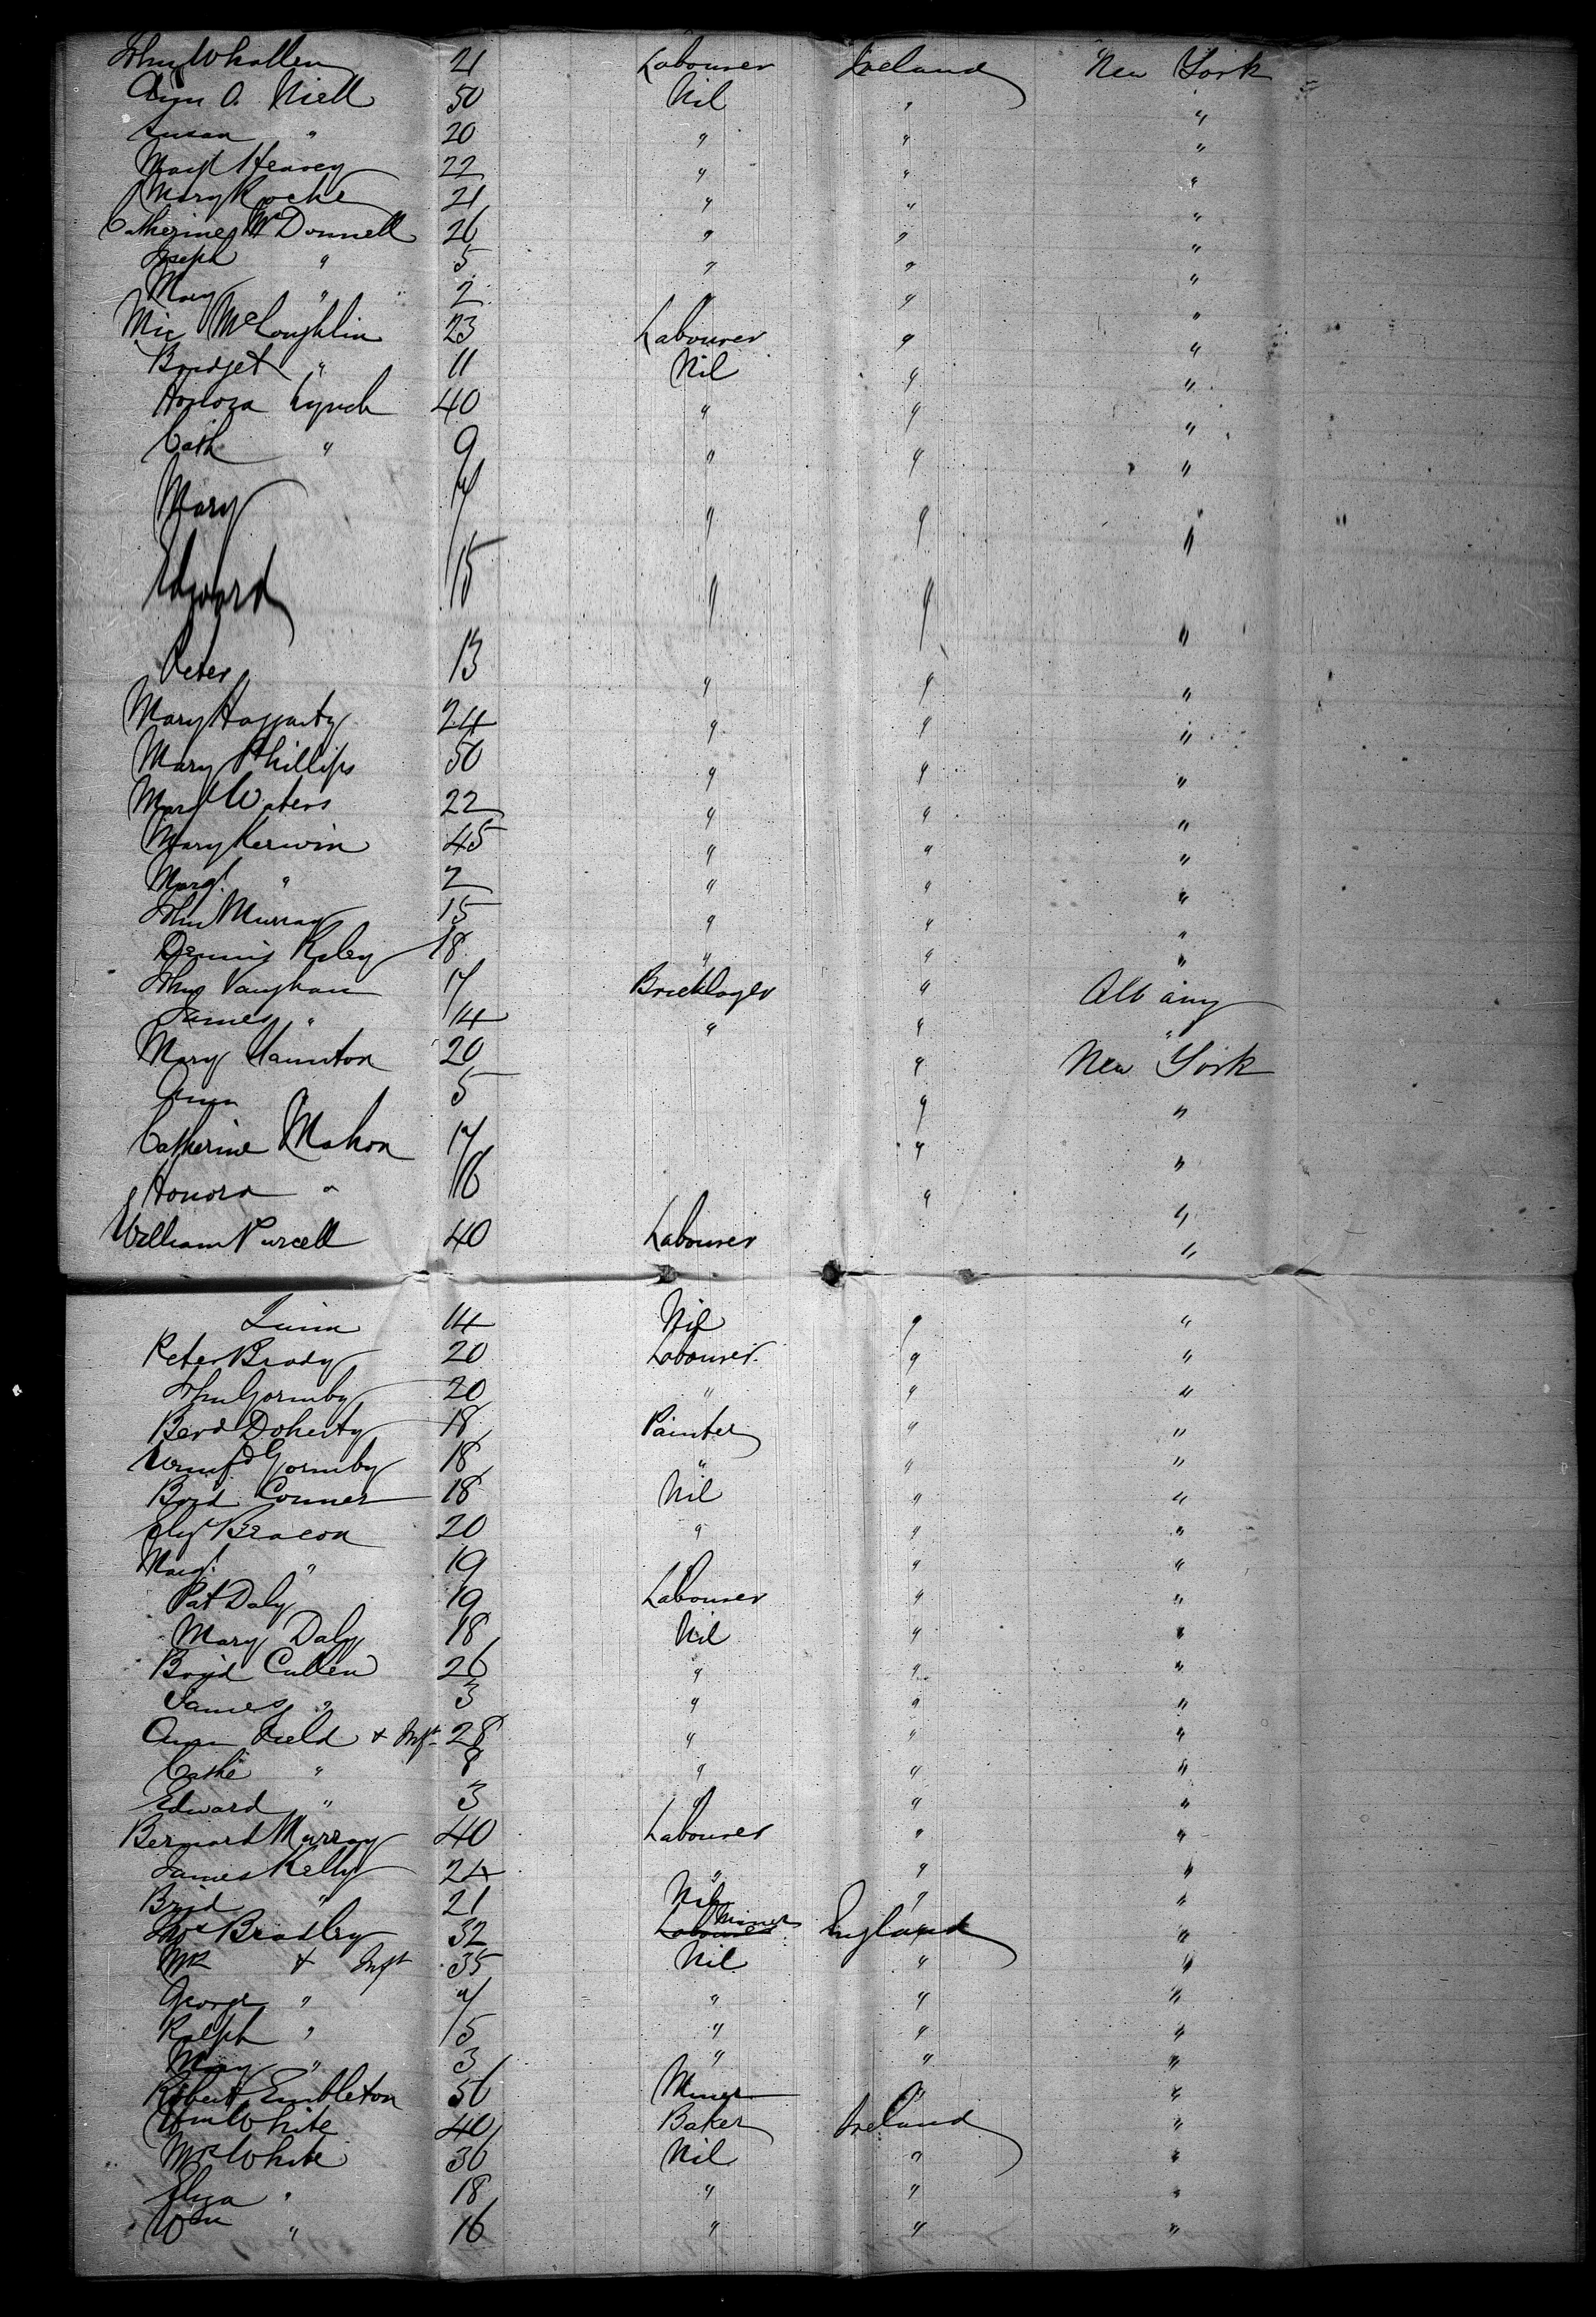 John Whallen 21 Labourer Ireland New York
Ann O. Niell 50 Nil " "
Susan " 20 " " "
Margt Heavey 22 " " "
Mary Roche 21 " " "
Catherine McDonnell 26 " " "
Joseph " 5 " " "
Mary " 2 " " "
Mic McLoughlin 23 Labourer " "
Bridget " 11 Nil " "
Honora Lynch 40 " " "
Cath " 9 " " "
Mary 7 " " "
Edward 15 " " "
Peter 13 " " "
Mary Haggarty 24 " " "
Mary Phillips 50 " " "
Margt Waters 22 " " "
Mary Kerwin 45 " " "
Margt " 2 " " "
John Murray 15 " " "
Dennis Raley 18 " " "
John Vaughan 17 Bricklayer " Albany
James " 14 " " "
Mary Staunton 20 " New York
Ann 5 " "
Catherine Mahon 17 " "
Honora " 16 " "
William Purcell 40 Labourer "
Quinn 14 Nil " "
Peter Brady 20 Labourer " "
John Gormby 20 " " "
Berd Doherty 18 Painter " "
Gormby 18 " " "
Brid Conner 18 Nil " "
Beacon 20 " " "
Margt " 19 " " "
Pat Daly 19 Labourer " "
Mary Daly 18 Nil " "
Brijd Cullen 26 " " "
James " 3 " " "
Ann Field + Inft 28 " " "
Cathe " 8 " " "
Edward " 3 " " "
Bernard Murray 40 Labourer " "
James Kelly 24 " " "
Brid " 21 Nil " "
Thos Bradley 32 Labourer Miner England "
Mrs + Inft 35 Nil " "
George " 7 " " "
Ralph " 5 " " "
Mary " 3 " " "
Robert Embleton 56 Miner " "
Wm White 40 Baker Ireland "
Mrs White 36 Nil " "
Eliza " 18 " " "
Wm " 16 " " "